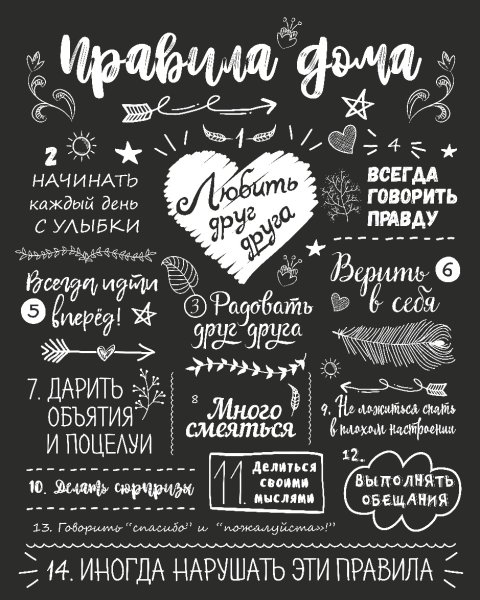 Правила дома
1
Любить
друг
друга
2
НАЧИНАТЬ
каждый день
С УЛЫБКИ
3
Радовать
друг друга
4
ВСЕГДА
ГОВОРИТЬ
ПРАВДУ
5
Всегда идти
вперёд!
6
Верить
в себя
7. ДАРИТЬ
ОБЪЯТИЯ
И ПОЦЕЛУИ
8
Много
смеяться
9. Не ложиться спать
в плохом настроении
10. Делать сюрпризы
11.
Делиться
своими
мыслями
12.
ВЫПОЛНЯТЬ
ОБЕЩАНИЯ
13. Говорить "спасибо" и "пожалуйста»!"
14. ИНОГДА НАРУШАТЬ ЭТИ ПРАВИЛА